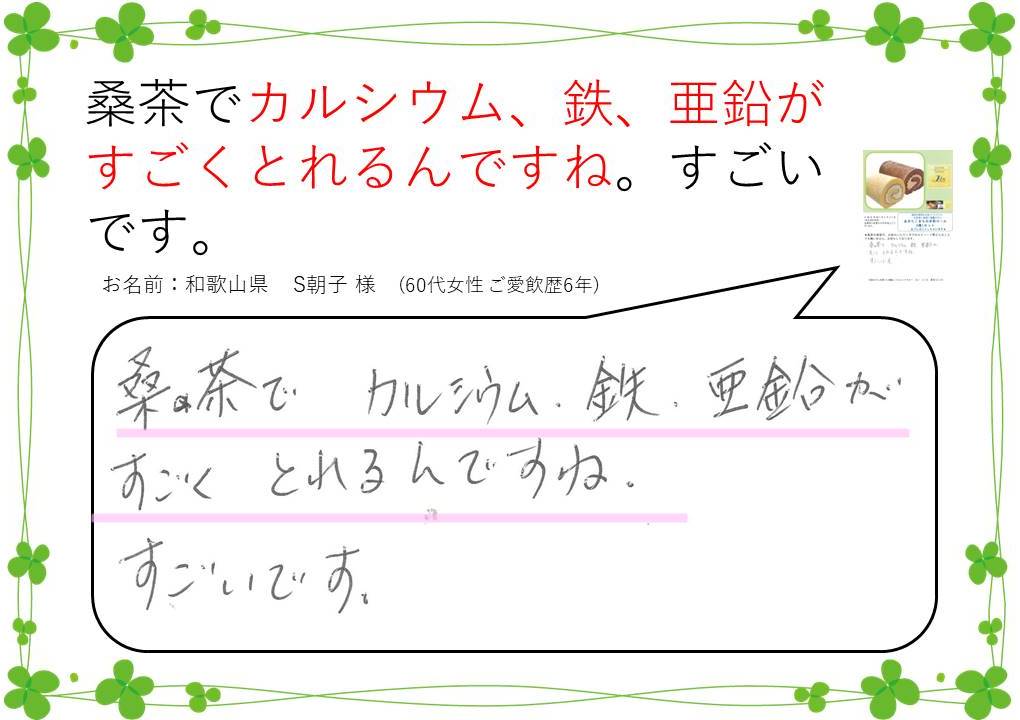 桑茶でカルシウム、鉄、亜鉛が
すごくとれるんですね。すごい
です。
お名前：和歌山県　S朝子 様　（60代女性 ご愛飲歴6年）
桑の茶で カルシウム．鉄．亜鉛が
すごく とれるんですね。
すごいです。